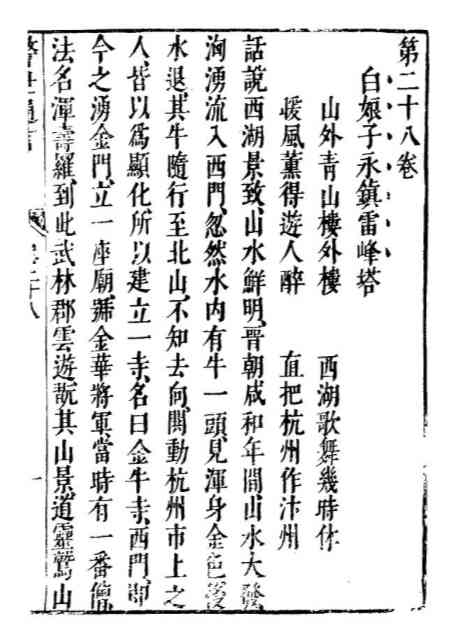 第二十八卷
白娘子永鎮雷峰塔
山外青山樓外樓　西湖歌舞幾時休
煖風薰得遊人醉　直把杭州作汴州
話說西湖景致、山水鮮明、晉朝咸和年間山水大發
洶湧流入西門、忽然水内有牛一頭、見渾身金色、後
水退、其牛隨行至北山、不知去向、閧動杭州市上之
人、皆以爲顯化所以建立一寺、名曰金牛寺、西門、即
今之湧金門、立一座廟、號金華將軍、當時有一番僧
法名渾壽羅、到此武林郡雲遊、翫其山景、道靈鷲山
警世通言　卷二十八　一